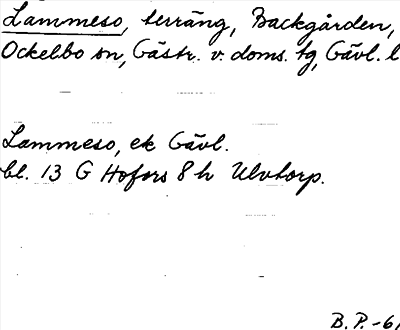 Lammeso, terräng, Backgården,
Ockelbo sn, Gästr. v. doms. tg, Gävl. l
Lammeso, ek Gävl.
bl. 13 G Hofors 8 h Ulvtorp.
B.P. -61